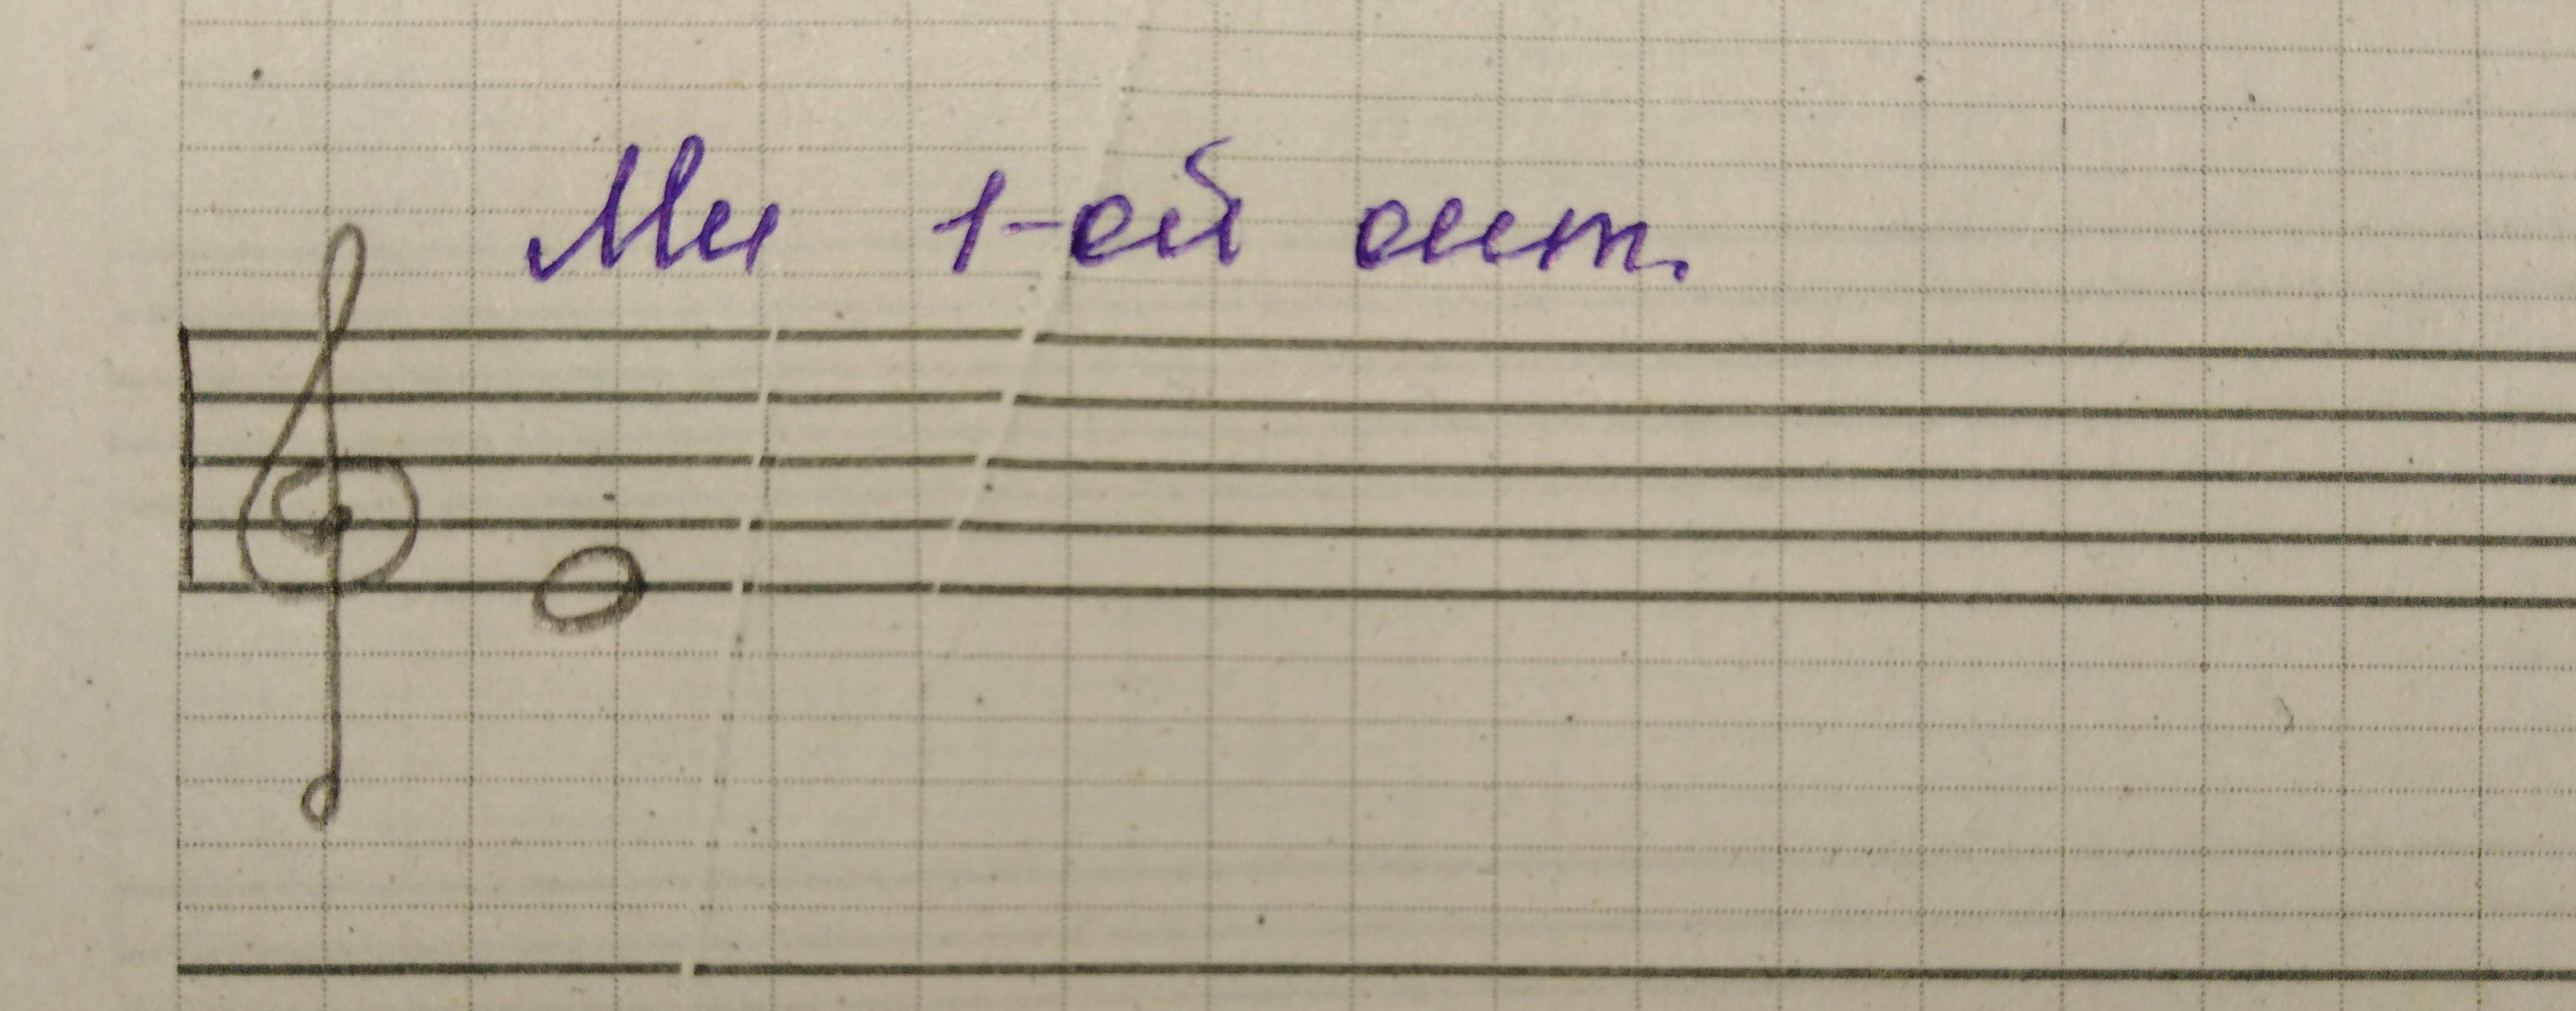 Ми 1-ой окт.